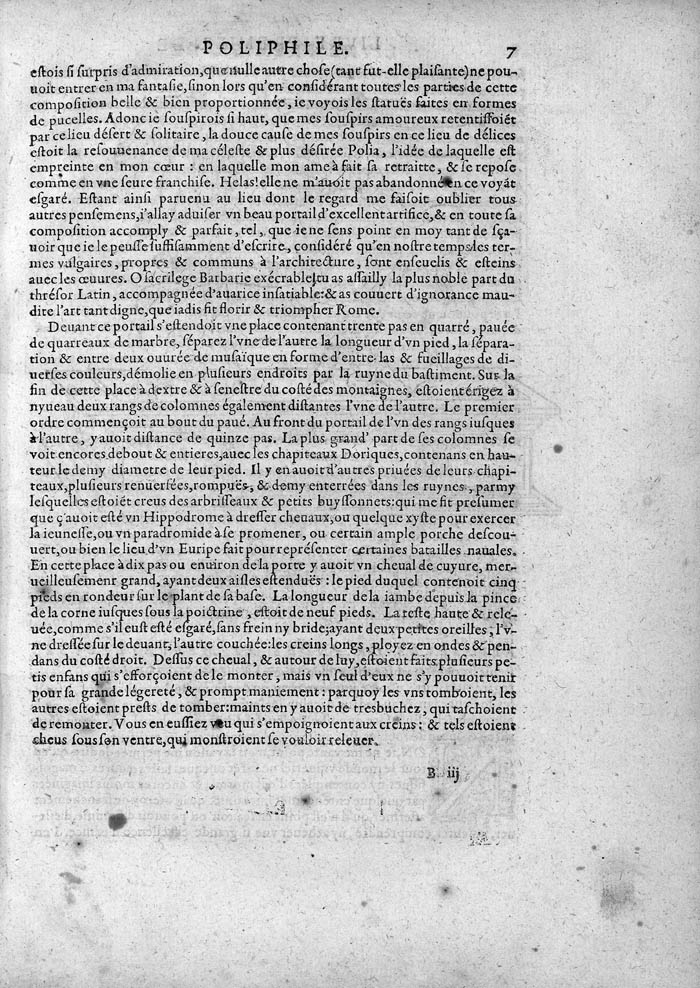 POLIPHILE. 7
eſtois ſi ſurpris d'admiration, que nulle autre choſe (tant fut-elle plaiſante) ne pou-
uoit entrer en ma fantaſie, ſinon lors qu'en conſidérant toutes les parties de cette
compoſition belle & bien proportionnée, ie voyois les ſtatuës faites en formes
de pucelles. Adonc ie ſouſpirois ſi haut, que mes ſouſpirs amoureux retentiſſoiét
par ce lieu déſert & ſolitaire, la douce cauſe de mes ſouſpirs en ce lieu de délices
eſtoit la reſouuenance de ma céleſte & plus déſirée Polia, l'idée de laquelle eſt
empreinte en mon cœur : en laquelle mon ame à fait ſa retraitte, & ſe repoſe
comme en vne ſeure franchiſe. Helas! elle ne m'auoit pas abandonné en ce voyát
eſgaré. Eſtant ainſi paruenu au lieu dont le regard me faiſoit oublier tous
autres penſemens, i'allay aduiſer vn beau portail d'excellent artifice, & en toute ſa
compoſition accomply & parfait, tel, que ie ne ſens point en moy tant de ſça-
uoir que ie le peuſſe ſuffiſamment d'eſcrire, conſidéré qu'en noſtre temps les ter-
mes vulgaires, propres & communs à l'architecture, ſont enſeuelis & eſteins
auec les œuures. O ſacrilege Barbarie exécrable, tu as aſſailly la plus noble part du
thréſor Latin, accompagnée d'auarice inſatiable: & as couuert d'ignorance mau-
dite l'art tant digne, que iadis fit florir & triompher Rome.
Deuant ce portail s'eſtendoit vne place contenant trente pas en quarré, pauée
de quarreaux de marbre, ſéparez l'vne de l'autre la longueur d'vn pied, la ſépara-
tion & entre deux ouurée de muſaïque en forme d'entre-las & fueillages de di-
uerſes couleurs, démolie en pluſieurs endroits par la ruyne du baſtiment. Sur la
fin de cette place à dextre & à ſeneſtre du coſté des montaignes, eſtoient érigez à
nyueau deux rangs de colomnes également diſtantes l'vne de l'autre. Le premier
ordre commençoit au bout du paué. Au front du portail de l'vn des rangs iuſques
à l'autre, y auoit diſtance de quinze pas. La plus grand' part de ſes colomnes ſe
voit encores debout & entieres, auec les chapiteaux Doriques, contenans en hau-
teur le demy diametre de leur pied. Il y en auoit d'autres priuées de leurs chapi-
teaux, pluſieurs renuerſées, rompuës, & demy enterrées dans les ruynes, parmy
leſquelles eſtoiét creus des arbriſſeaux & petits buyſſonnets: qui me fit preſumer
que ç'auoit eſté vn Hippodrome à dreſſer cheuaux, ou quelque xyſte pour exercer
la ieuneſſe, ou vn paradromide à ſe promener, ou certain ample porche deſcou-
uert, ou bien le lieu d'vn Euripe fait pour repréſenter certaines batailles nauales.
En cette place à dix pas ou enuiron de la porte y auoit vn cheual de cuyure, mer-
ueilleuſement grand, ayant deux aiſles eſtenduës : le pied duquel contenoit cinq
pieds en rondeur ſur le plant de ſa baſe. La longueur de la iambe depuis la pince
de la corne iuſques ſous la poictrine, eſtoit de neuf pieds. La teſte haute & rele-
uée, comme s'il euſt eſté eſgaré, ſans frein ny bride; ayant deux petites oreilles, l'v-
ne dreſſée ſur le deuant, l'autre couchée: les creins longs, ployez en ondes & pen-
dans du coſté droit. Deſſus ce cheual, & autour de luy, eſtoient faits pluſieurs pe-
tis enfans qui s'efforçoient de le monter, mais vn ſeul d'eux ne s'y pouuoit tenir
pour ſa grande légereté, & prompt maniement : parquoy les vns tomboient, les
autres eſtoient preſts de tomber: maints en y auoit de tresbuchez, qui taſchoient
de remonter. Vous en euſſiez veu qui s'empoignoient aux creins : & tels eſtoient
cheus ſous ſon ventre, qui monſtroient ſe vouloir releuer.
B iij